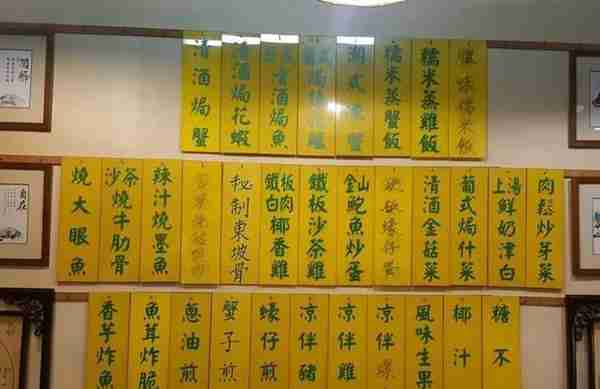 清酒焗蟹
清酒焗花蝦
清酒焗魚
糯米蒸蟹飯
糯米蒸雞飯
臘味糯米飯
自在
燒大眼魚
沙茶燒牛肋骨
辣汁燒墨魚
秘制東坡骨
鐵板白肉椰香雞
鐵板沙茶雞
金山鮑魚炒蛋
清酒金菇菜
葡式焗什菜
上湯鮮奶津白
肉鬆炒芽菜
香芋炸魚
魚茸炸脆
蔥油煎
蟹子煎
蠔仔煎
涼伴豬
涼伴雞
涼伴螺
風味生果
椰汁
糖不